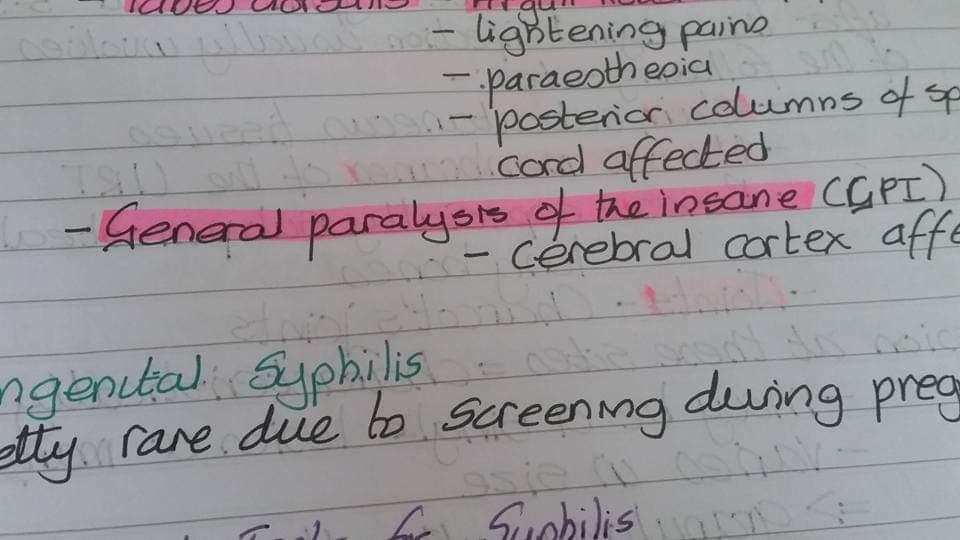 - Tabes dorsalis - Argyll
- lightening pains
- paraesthesia
- posterior columns of sp
cord affected
- General paralysis of the insane (GPI)
- cerebral cortex affe
ngenital Syphilis
etty rare due to screening during preg
for Syphilis